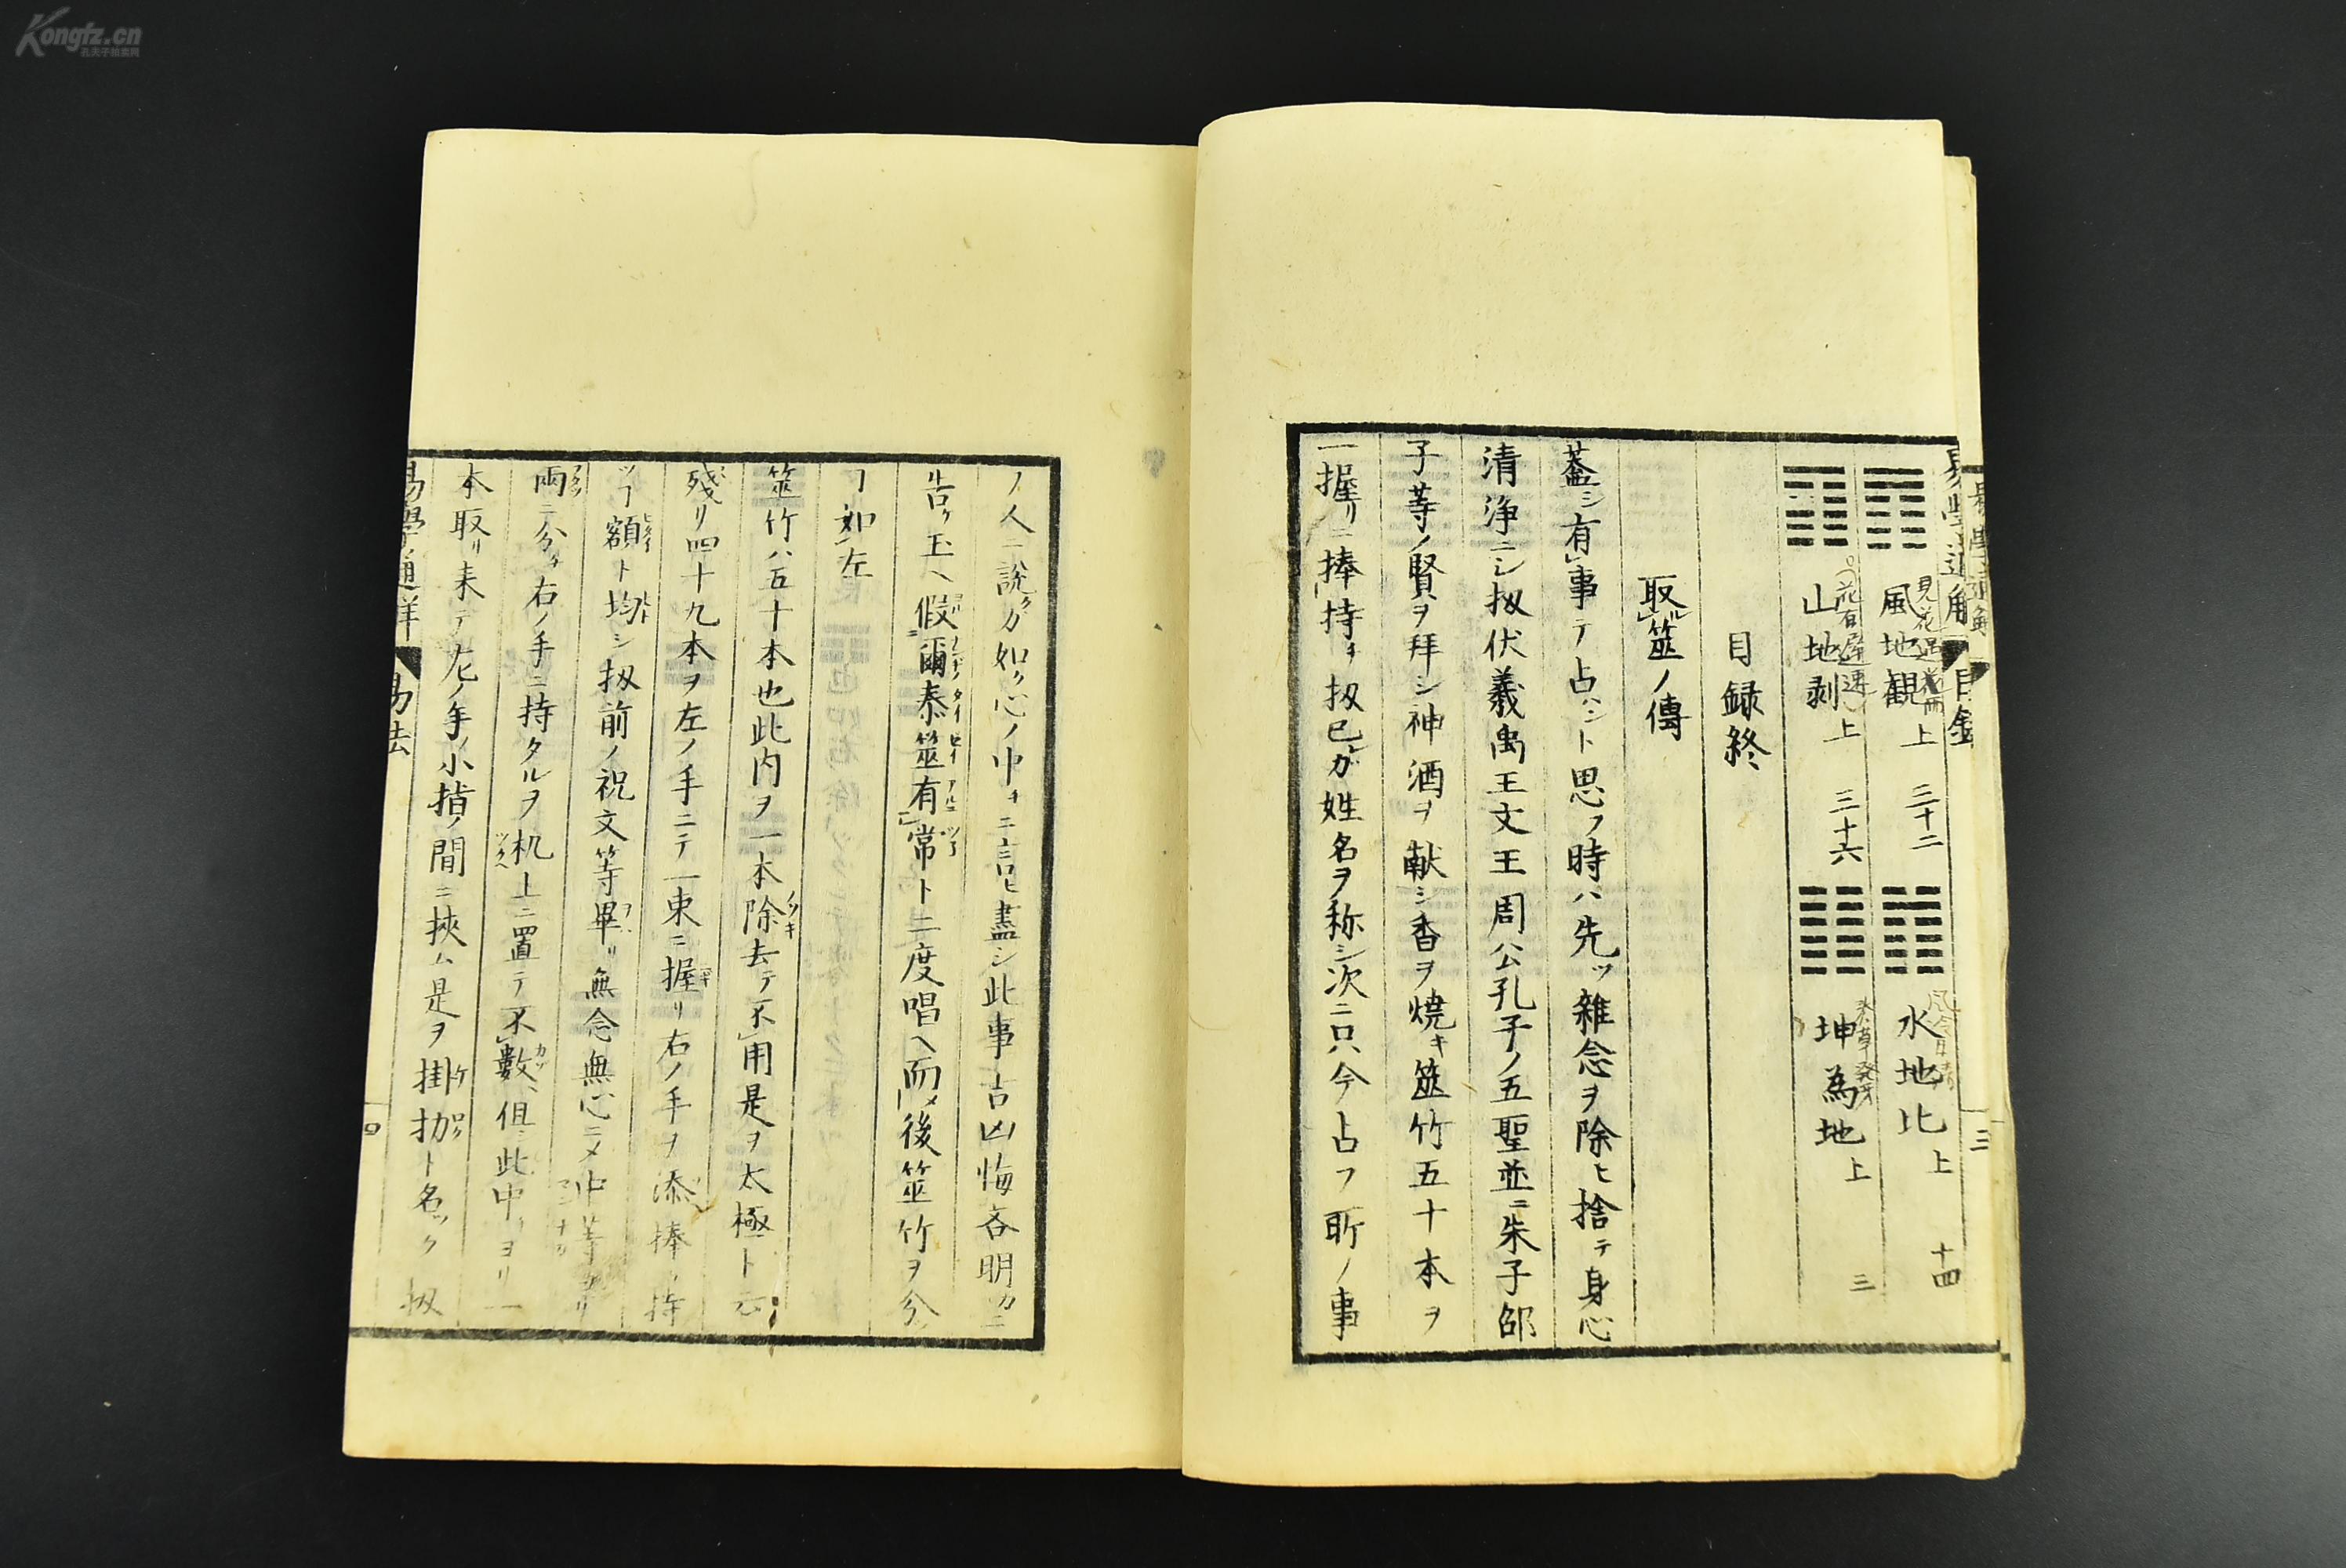 Kongfz.cn
孔夫子拍卖网
目録
風地観 上 二十二
水地比 上 十四
山地剥 上 三十六
坤為地 上 三
目録終
取ル筮ノ傳
蓋シ有事テ占ハント思フ時ハ先ツ雑念ヲ除ヒ捨テ身心
清浄ニシ扨伏義禹王文王周公孔子ノ五聖並ニ朱子邵
子等ノ賢ヲ拜シ神酒ヲ献シ香ヲ焼キ筮竹五十本ヲ
一握リニ捧持チ扨已カ姓名ヲ称シ次ニ只今占フ所ノ事
ノ人ニ說クカ如ク心ノ中チニ言ヒ盡シ此事吉凶悔吝明カニ
告ケ玉ヘ假爾泰筮有常ト二度唱ヘ而メ後筮竹ヲ分
ヿ如左
筮竹ハ五十本也此内ヲ一本除去テ不用是ヲ太極ト云
殘リ四十九本ヲ左ノ手ニテ一束ニ握リ右ノ手ヲ添捧ケ持
ツヿ額ト均シ扨前ノ祝文等畢リ無念無心ニメ中等ヨリ
兩ニ分ケ右ノ手ニ持タルヲ机上ニ置テ不數但此中ヨリ一
本取リ来テ左ノ手ノ小指ノ間ニ挾ム是ヲ掛扐ト名ツク扨
易學通解 易法
四